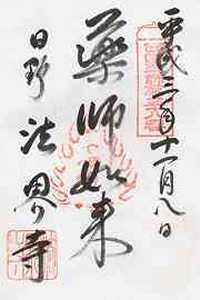 平成三年十一月八日
藥師如来
日野 法界寺